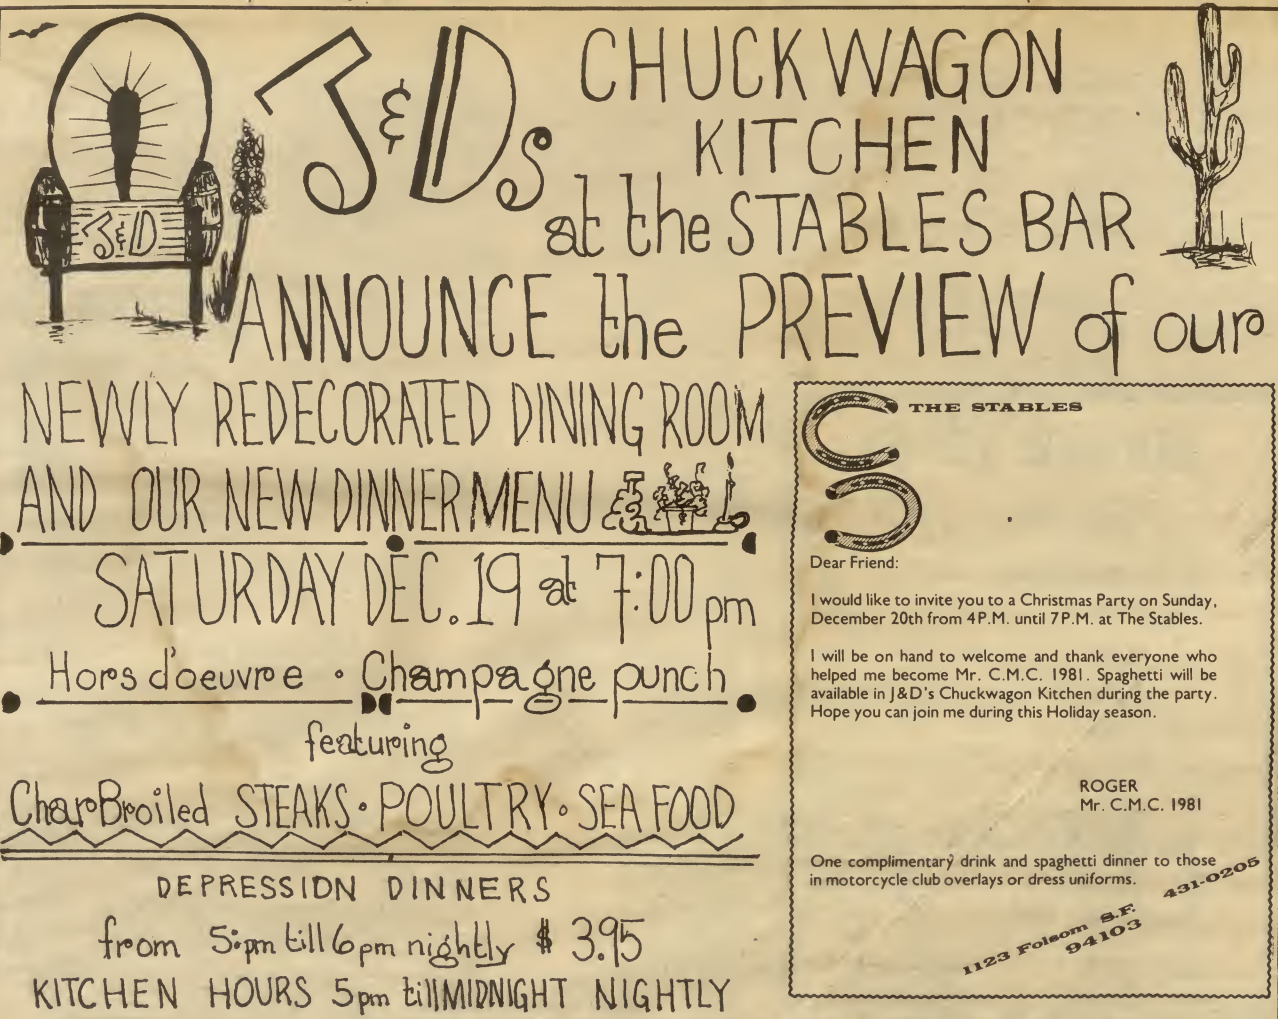 J&Ds CHUCK WAGON
KITCHEN
at the STABLES BAR
J&D
ANNOUNCE the PREVIEW of our
NEWLY REDECORATED DINING ROOM
AND OUR NEW DINNER MENU
SATURDAY DEC. 19 at 7:00 pm
Hors d'oeuvre • Champagne punch
featuring
CharBroiled STEAKS • POULTRY • SEA FOOD
DEPRESSION DINNERS
from 5:pm till 6pm nightly $ 3.95
KITCHEN HOURS 5pm till MIDNIGHT NIGHTLY
THE STABLES
Dear Friend:
I would like to invite you to a Christmas Party on Sunday,
December 20th from 4 P.M. until 7 P.M. at The Stables.
I will be on hand to welcome and thank everyone who
helped me become Mr. C.M.C. 1981. Spaghetti will be
available in J&D's Chuckwagon Kitchen during the party.
Hope you can join me during this Holiday season.
ROGER
Mr. C.M.C. 1981
One complimentary drink and spaghetti dinner to those
in motorcycle club overlays or dress uniforms.
1123 Folsom S.F. 431-0205
94103